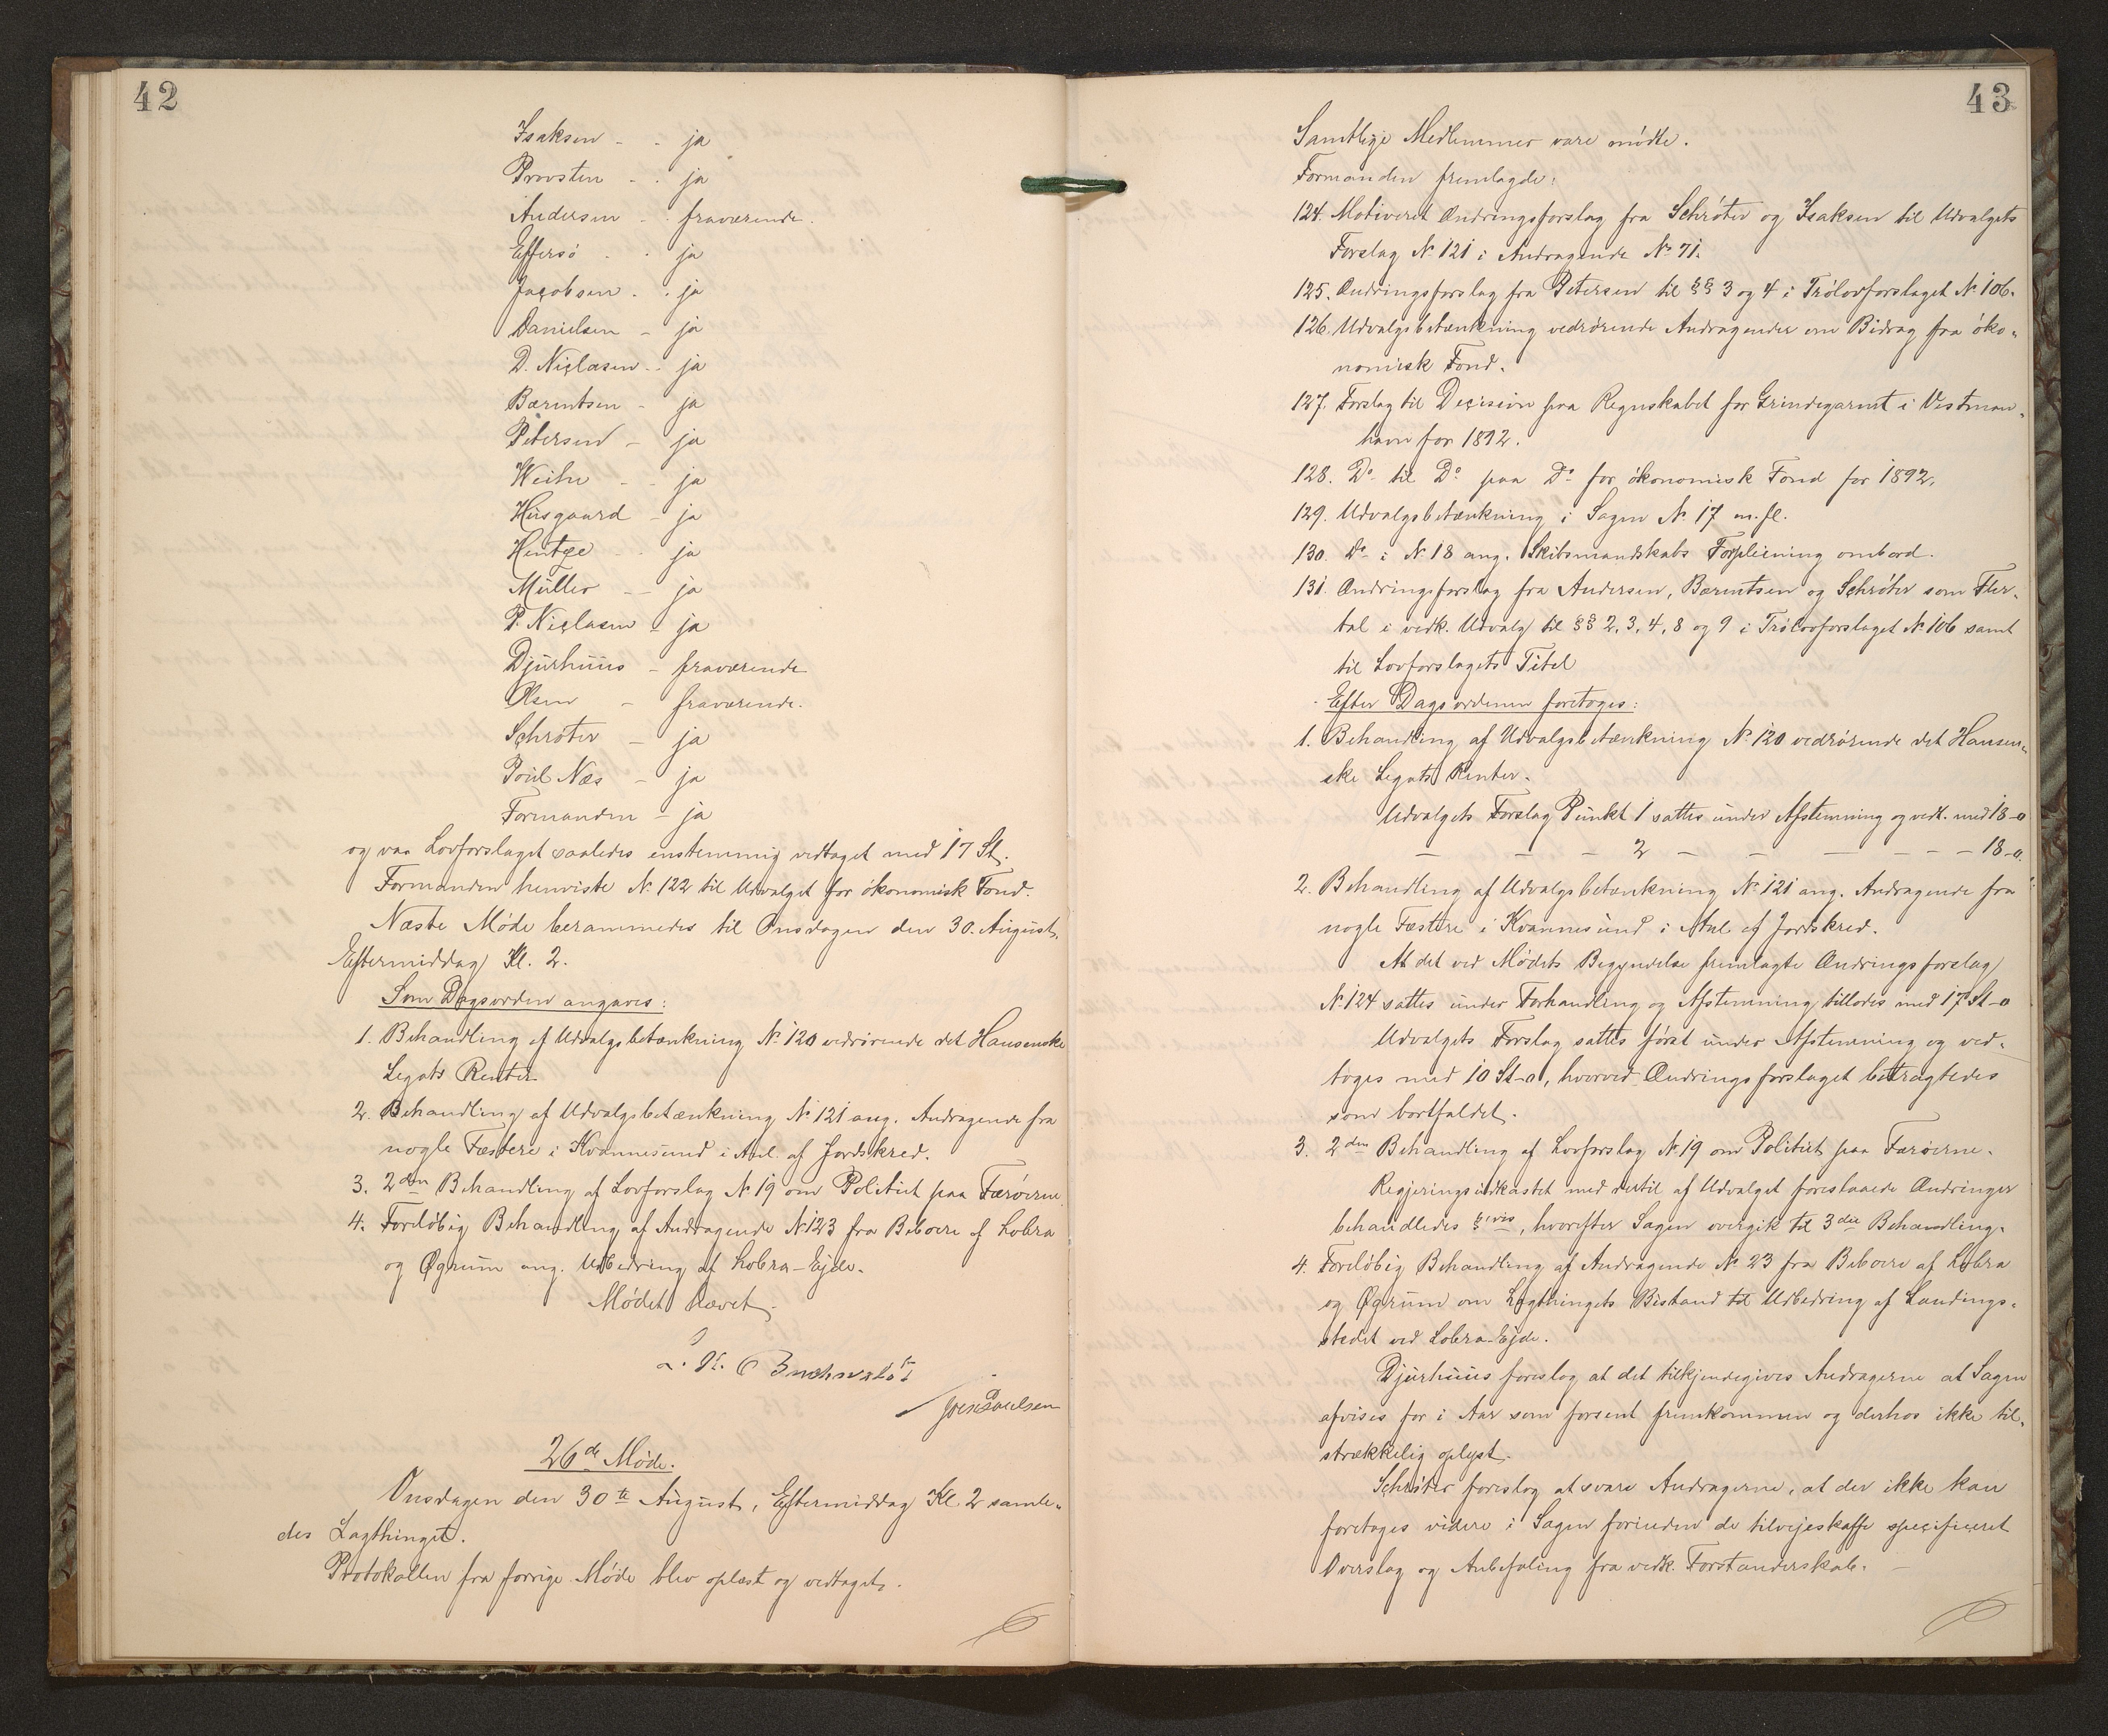 42
Isaksen - - ja
Provsten - - ja
Andersen - - fraværende.
Effersö - - ja
Jacobsen - - ja
Danielsen - ja
D. Niclasen - - ja
Bærentsen - ja
Petersen - ja
Weihe - - ja
Husgaard - ja
Hentze - - ja
Müller - - ja
P. Niclasen - ja
Djurhuus - fraværende
Olsen - fraværende.
Schrøter - ja
Poul Næs - ja
Formanden - ja
og var Lovforslaget saaledes enstemmig vedtaget med 17 St.
Formanden henviste No 122 til Udvalget for økonomisk Fond.
Næste Møde berammedes til Onsdagen den 30. August,
Eftermiddag Kl. 2.
Som Dagsorden angaves:
1. Behandling af Udvalgsbetænkning No 120 vedrørende det Hansenske
Legats Renter.
2. Behandling af Udvalgsbetænkning No 121 ang. Andragende fra
nogle Fæstere i Kvannesund i Anl. af Jordskred.
3. 2den Behandling af Lovforslag No 19 om Politiet paa Færøerne
4. Foreløbig Behandling af Andragende No 123 fra Beboere af Lobra
og Øgrum ang. Udbedring af Lobra-Ejde.
Mødet hævet.
Buchwaldt
Joen Poulsen
26de Møde.
Onsdagen den 30te August, Eftermiddag Kl. 2 samle-
des Lagthinget.
Protokollen fra forrige Møde blev oplæst og vedtaget.
43
Samtlige Medlemmer vare mødte.
Formanden fremlagde:
124. Motiveret Ændringsforslag fra Schrøter og Isaksen til Udvalgets
Forslag No 121 i Andragende No 71.
125. Ændringsforslag fra Petersen til §§ 3 og 4 i Trølovforslaget No 106.
126. Udvalgsbetænkning vedrørende Andragender om Bidrag fra øko-
nomisk Fond.
127. Forslag til Decision paa Regnskabet for Grindegarnet i Vestman-
havn for 1892.
128. Do til Do paa Do for økonomisk Fond for 1892.
129. Udvalgsbetænkning i Sagen No 17 m. fl.
130. Do i No 18 ang. Skibsmandskabs Forpleining ombord.
131. Ændringsforslag fra Andersen, Bærentsen og Schrøter som Fler-
tal i vedk. Udvalg til §§ 2, 3, 4, 8 og 9 i Trølovforslaget No 106 samt
til Lovforslagets Titel
Efter Dagsordenen foretoges:
1. Behandling af Udvalgsbetænkning No 120 vedrørende det Hansen-
ske Legats Renter.
Udvalgets Forslag Punkt 1 sattes under Afstemning og vedt. med 18-0
— — — 2 — — — — — — 18-0.
2. Behandling af Udvalgsbetænkning No 121 ang. Andragende fra
nogle Fæstere i Kvannesund i Anl. af Jordskred.
At det ved Mødets Begyndelse fremlagte Ændringsforslag
No 124 sattes under Forhandling og Afstemning tillodes med 17 St-0
Udvalgets Forslag sattes først under Afstemning og ved-
toges med 10 St-0, hvorved Ændringsforslaget betragtedes
som bortfaldet.
3. 2den Behandling af Lovforslag No 19 om Politiet paa Færøerne.
Regjeringsudkastet med dertil af Udvalget foreslaaede Ændringer
behandledes §vis, hvorefter Sagen overgik til 3die Behandling.
4. Foreløbig Behandling af Andragende No 23 fra Beboere af Lobra
og Øgrum om Lagthingets Bistand til Udbedring af Landings-
stedet ved Lobra-Ejde.
Djurhuus foreslog at det tilkjendegives Andragerne at Sagen
afvises for i Aar som forsent fremkommen og derhos ikke til-
strækkelig oplyst.
Schrøter foreslog at svare Andragerne, at der ikke kan
foretages videre i Sagen forinden de tilvejeskaffe specificeret
Overslag og Anbefaling fra vedk. Forstanderskab. —